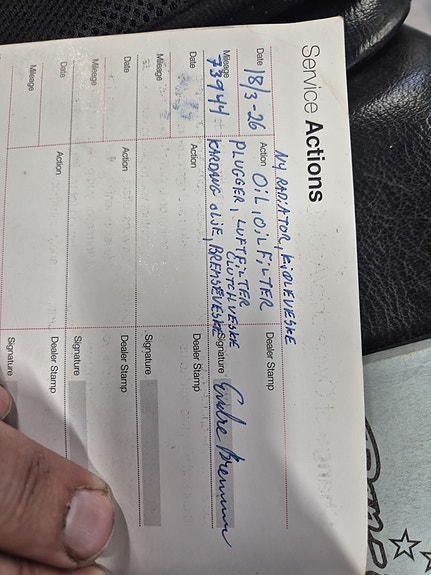 Service Actions
NY RADIATOR, KJØLEVESKE
Date 18/3-26 Action OIL, OILFILTER Dealer Stamp
PLUGGER, LUFTFILTER
CLUTCHVESKE
Mileage 73944 KARDANG OLJE, BREMSEVESKE Signature
Date Action Dealer Stamp
Mileage Signature
Date Action Dealer Stamp
Mileage Signature
Date Action Dealer Stamp
Mileage Signature